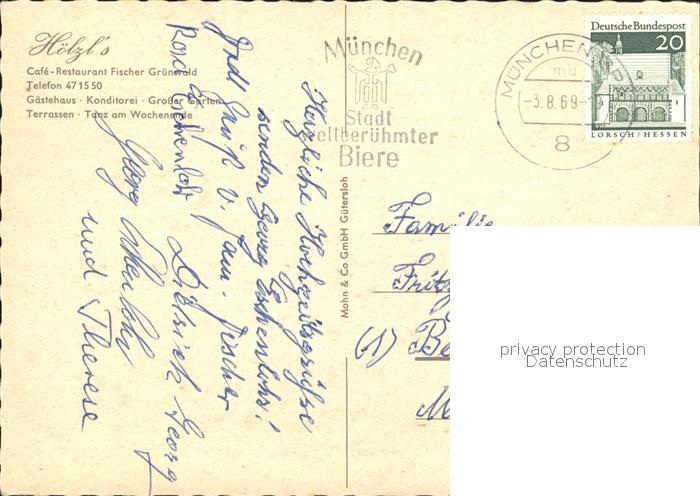 Hölzl's
Café-Restaurant Fischer Grünwald
Telefon 471550
Gästehaus · Konditorei · Großer Garten
Terrassen · Tanz am Wochenende
München
Stadt
weltberühmter
Biere
MÜNCHEN
-3.8.69-
8
Deutsche Bundespost
20
LORSCH/HESSEN
Herzliche Hochzeitsgrüße
senden Georg Eschenlohr!
Gruß v. Fam. Fischer
Rosa Eschenlohr Georg
Georg
und Therese
Mohn & Co GmbH Gütersloh
Familie
Fritz
(1) Be
privacy protection
Datenschutz